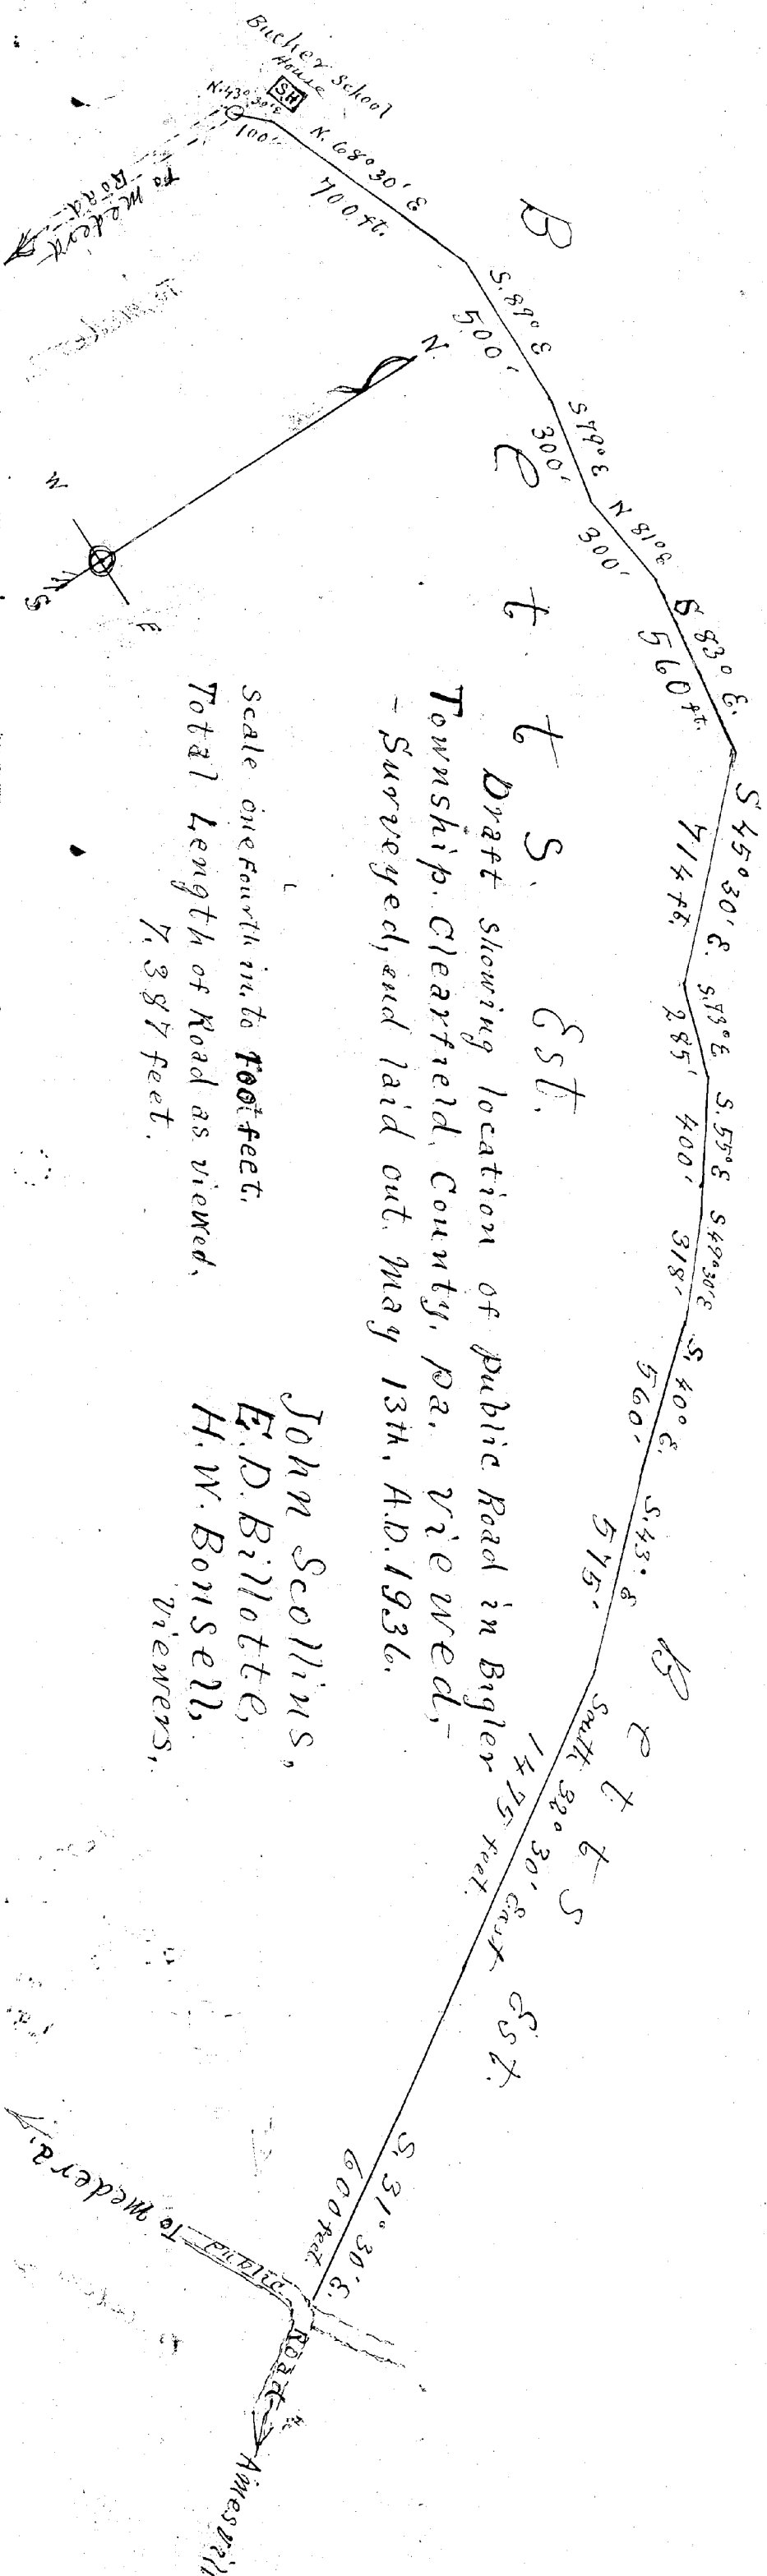 Bucher School
House
SH
N. 43° 30' E
100'
N. 68° 30' E
700 ft.
To medera
Road
S. 89° E
500'
S 79° E
300'
N 81° E
300'
S 83° E.
560 ft.
S 45° 30' E.
714 ft.
S. 73° E
285'
S. 55° E
400'
S. 49° 30' E
318'
S. 40° E.
560'
S. 43° E
575'
South 32° 30' East
1475 feet.
S. 31° 30' E.
600 feet.
Betts Est.
Betts Est.
N
W
E
S
Draft showing location of public Road in Bigler
Township. Clearfield, County, pa. viewed,-
- Surveyed, and laid out. May 13th, A.D. 1936.
Scale one Fourth in. to 100 feet.
Total Length of Road as viewed,
7,387 feet.
John Scollins,
E.D. Billotte,
H.W. Bonsell,
Viewers.
To medera,
Road
Aimesvill